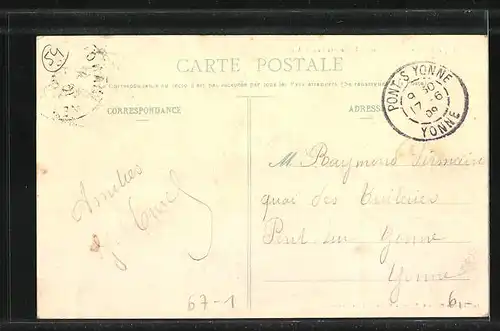 53
CARTE POSTALE
La Correspondance au recto n'est pas acceptée par tous les Pays étrangers (Se renseigner
CORRESPONDANCE
ADRESSE
PONT-S-YONNE
9 30
17 -6
09
YONNE
M Raymond
quai des Tuileries
Pont sur Yonne
Yonne
Amitiés
67-1
6,-